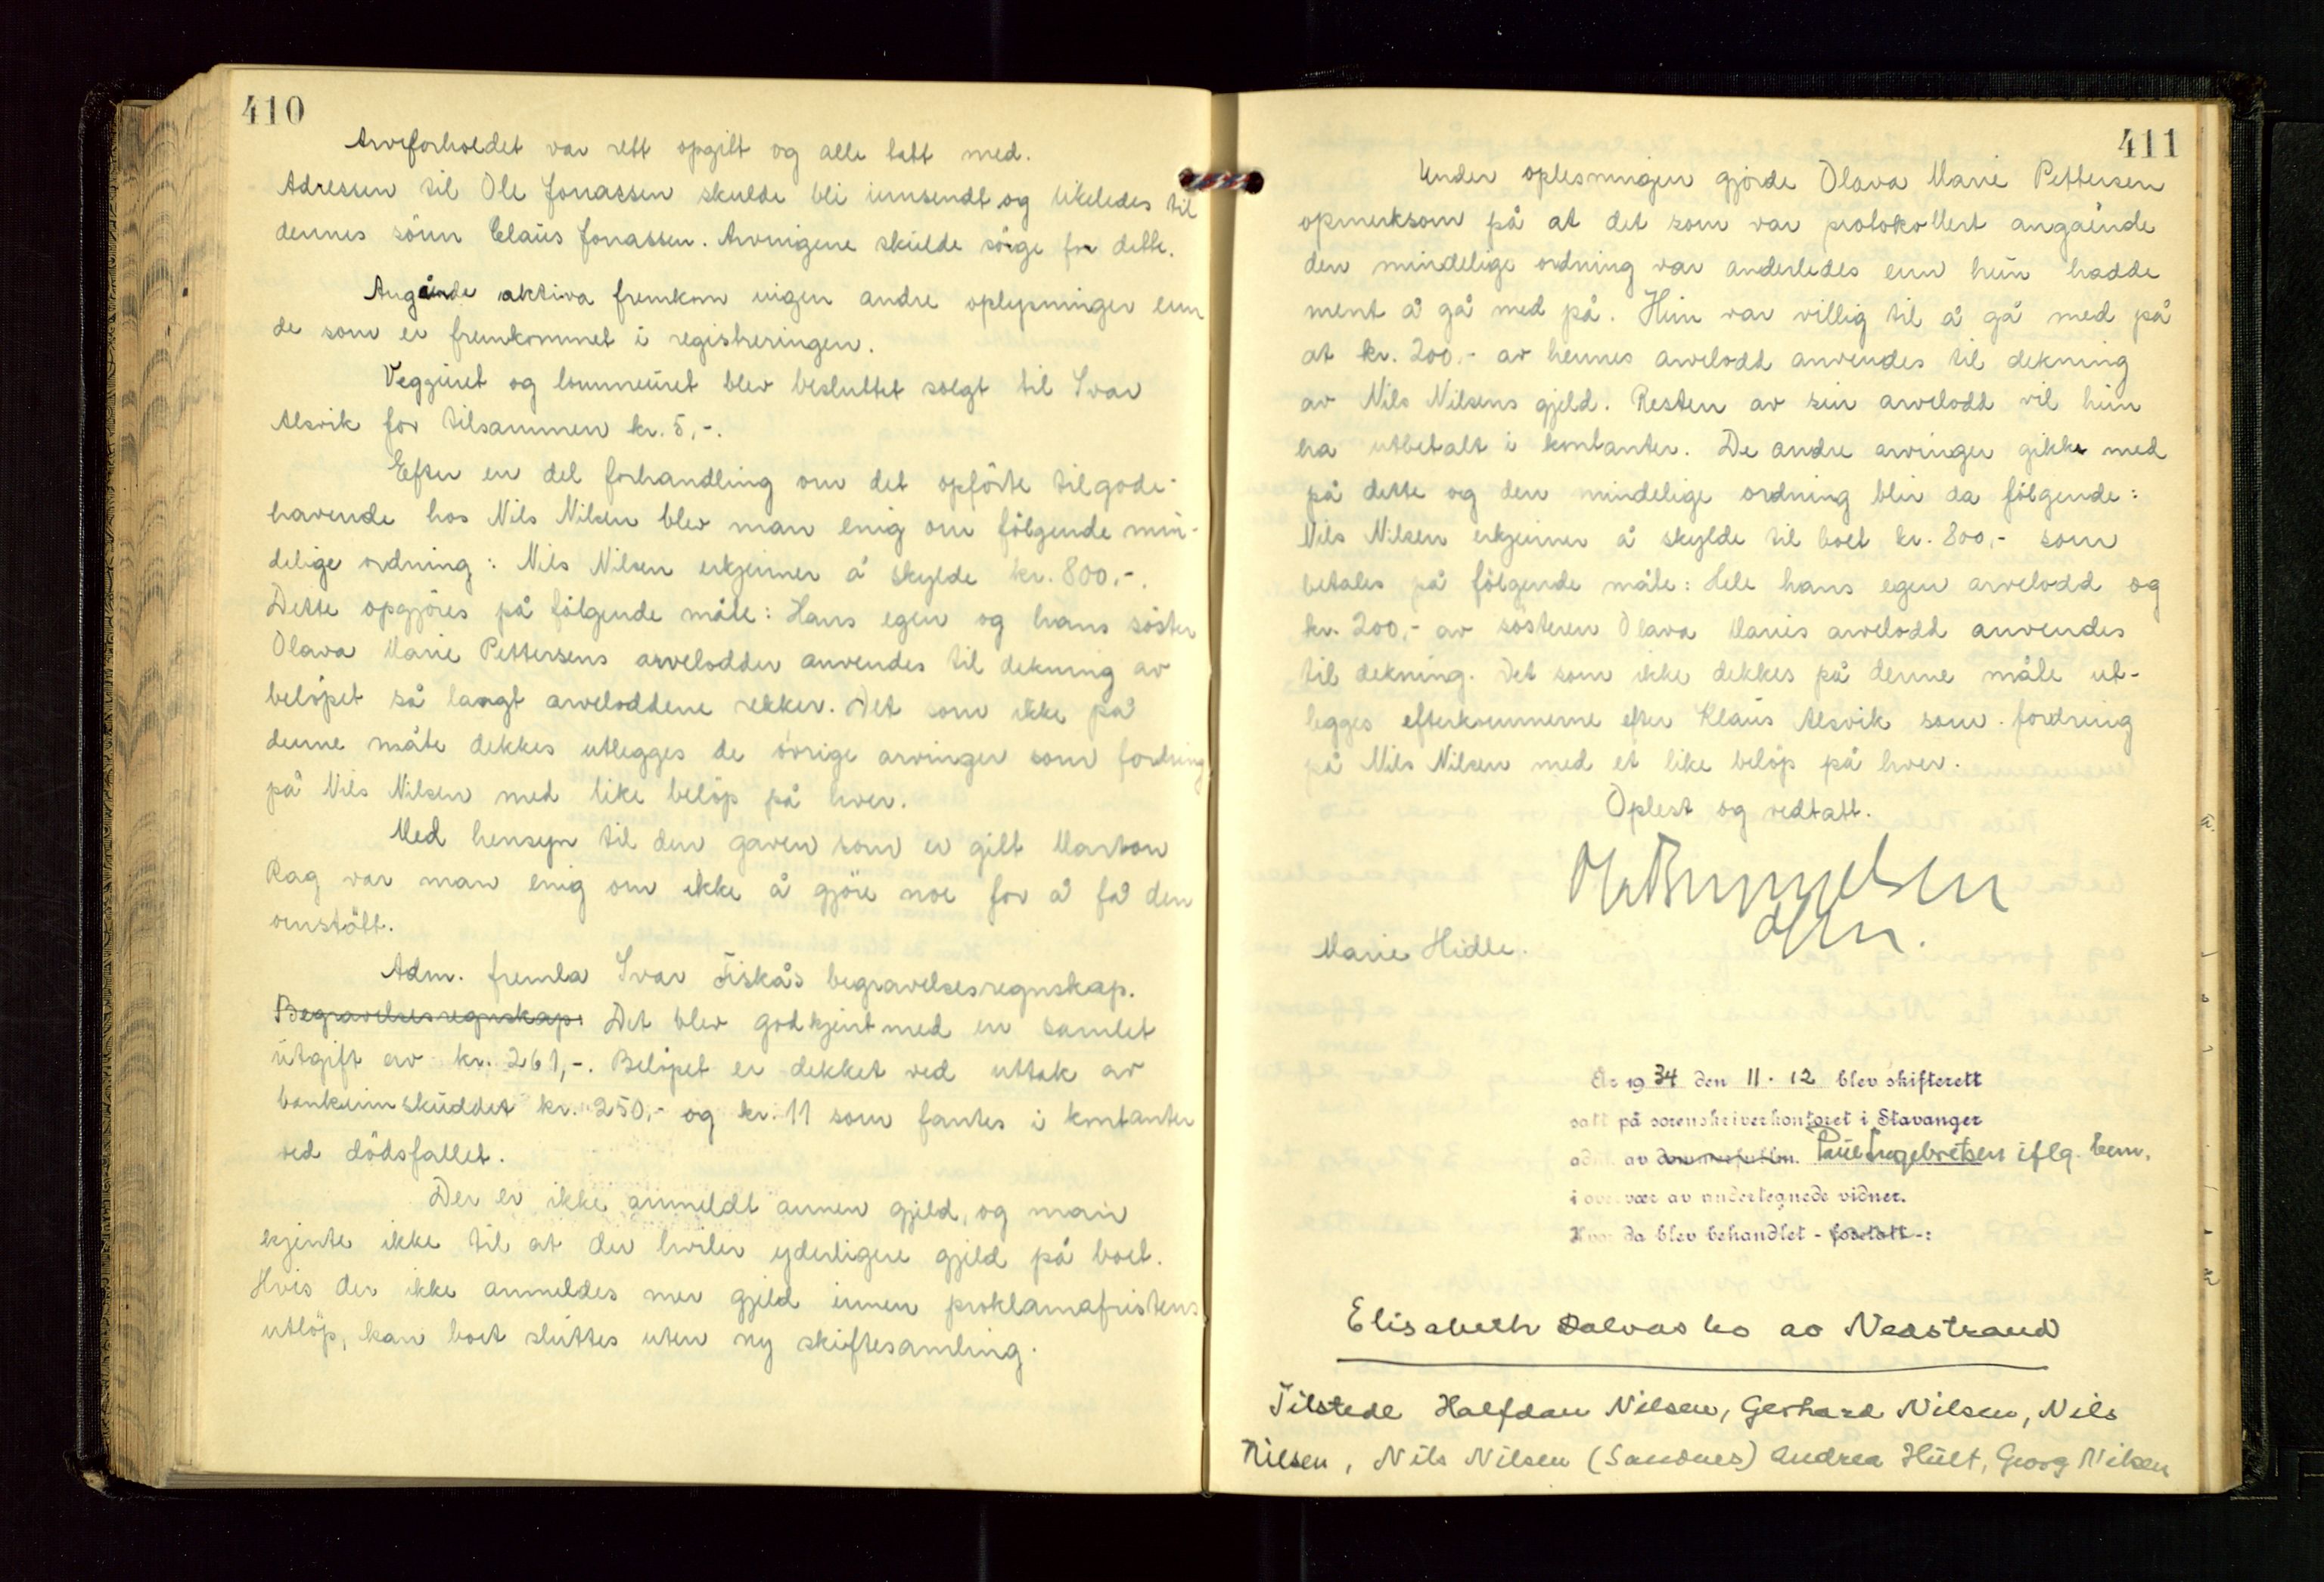 410
Arveforholdet var rett opgitt og alle tatt med.
Adressen til Ole Jonassen skulde bli innsendt og likeledes til
dennes sönn Claus Jonassen. Arvingene skulde sörge for dette.
Angående aktiva fremkom ingen andre oplysninger enn
de som er fremkommet i registreringen.
Vegguret og lommeuret blev besluttet solgt til Ivar
Alsvik for tilsammen kr. 5,-.
Efter en del forhandling om det opförte tilgode-
havende hos Nils Nilsen blev man enig om fölgende min-
delige ordning: Nils Nilsen erkjenner å skylde kr. 800,-.
Dette opgjöres på fölgende måte: Hans egen og hans söster
Olava Marie Pettersens arvelodder anvendes til dekning av
belöpet så langt arveloddene rekker. Det som ikke på
denne måte dekkes utlegges de övrige arvinger som fordring
på Nils Nilsen med like belöp på hver.
Med hensyn til den gaven som er gitt Marton
Rag var man enig om ikke å gjöre noe for å få den
omstött.
Adm. fremla Ivar Fiskås begravelsesregnskap.
Begravelsesregnskap: Det blev godkjent med en samlet
utgift av kr. 261,-. Belöpet er dekket ved uttak av
bankinnskuddet kr. 250,- og kr. 11 som fantes i kontanter
ved dödsfallet.
Der er ikke anmeldt annen gjeld, og man
kjente ikke til at der hviler yderligere gjeld på boet.
Hvis der ikke anmeldes mer gjeld innen proklamafristens
utlöp, kan boet sluttes uten ny skiftesamling.
411
Under oplesningen gjorde Olava Marie Pettersen
opmerksom på at det som var protokollert angående
den mindelige ordning var anderledes enn hun hadde
ment å gå med på. Hun var villig til å gå med på
at kr. 200.- av hennes arvelodd anvendes til dekning
av Nils Nilsens gjeld. Resten av sin arvelodd vil hun
ha utbetalt i kontanter. De andre arvinger gikk med
på dette og den mindelige ordning blir da fölgende:
Nils Nilsen erkjenner å skylde til boet kr. 800,- som
betales på fölgende måte: Hele hans egen arvelodd og
kr. 200,- av sösteren Olava Maries arvelodd anvendes
til dekning. Det som ikke dekkes på denne måte ut-
legges efterkommerne efter Klaus Alsvik som fordring
på Nils Nilsen med et like belöp på hver.
Oplest og vedtatt.
Marie Hidle.
År 1934 den 11.12 blev skifterett
satt på sorenskriverkontoret i Stavanger
adm. av dommerfullm. Paul Ingebretsen iflg. bem.
i overvær av undertegnede vidner.
Hvor da blev behandlet - foretatt -:
Elisabeth av Nedstrand
Tilstede Halfdan Nilsen, Gerhard Nilsen, Nils
Nilsen, Nils Nilsen (Sandnes) Andrea Hult, Georg Nilsen